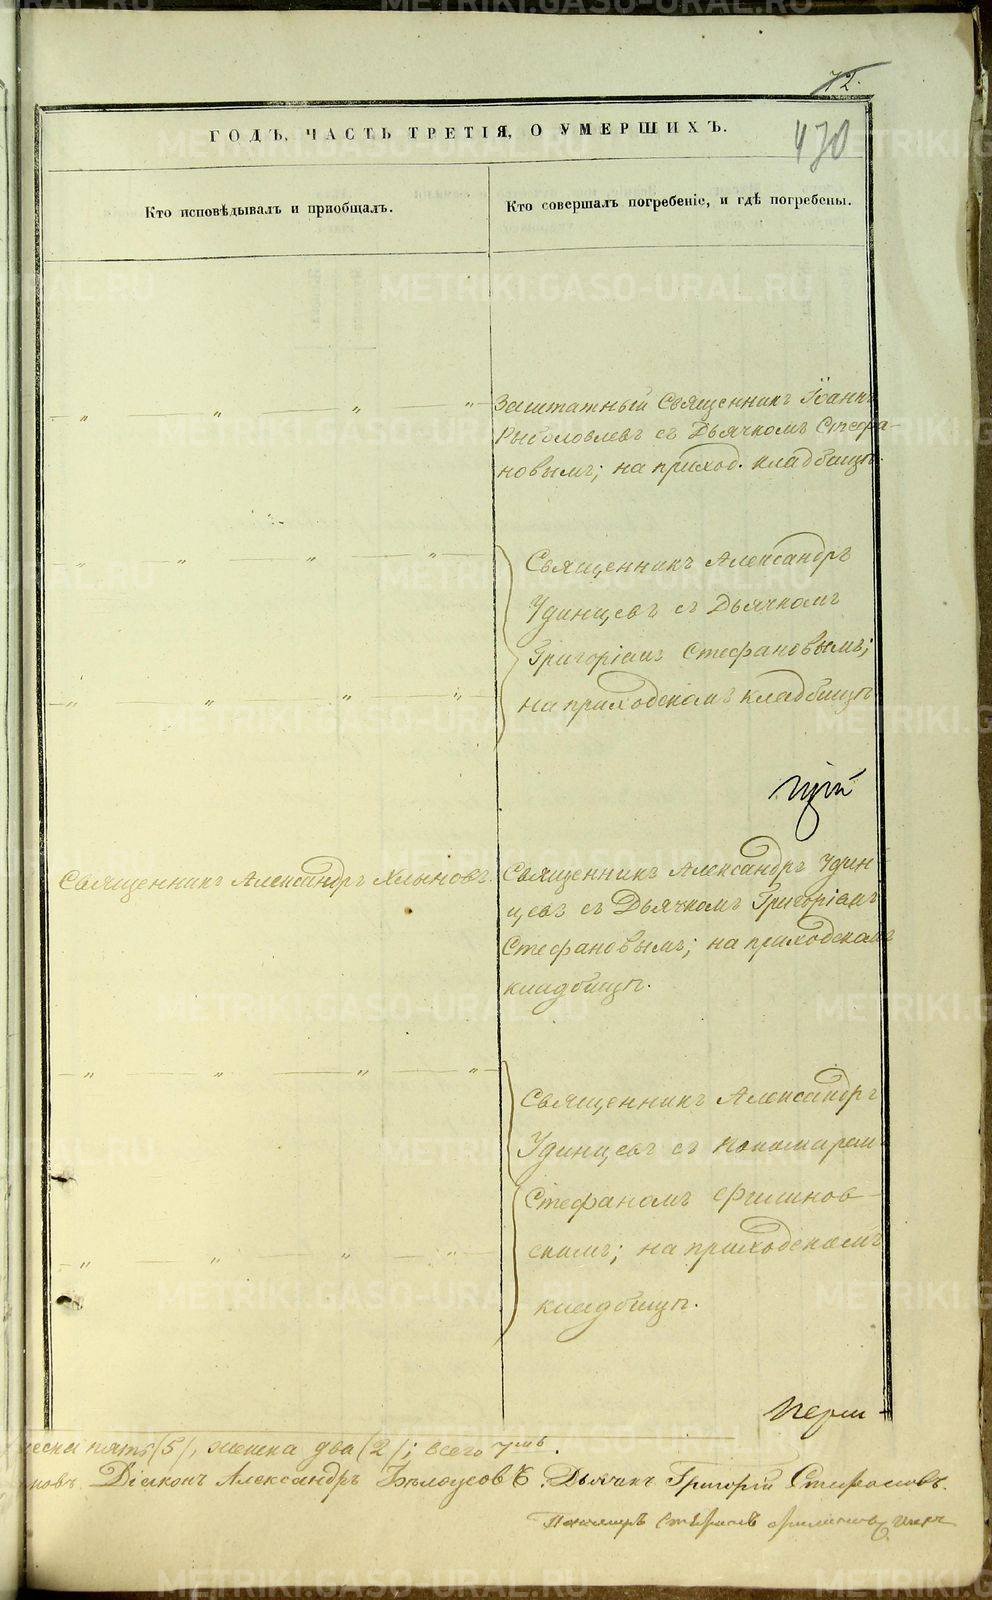 72.
470
ГОДЪ, ЧАСТЬ ТРЕТІЯ, О УМЕРШИХЪ.
Кто исповѣдывалъ и пріобщалъ.
Кто совершалъ погребеніе, и гдѣ погребены.
Заштатный Священникъ Іоаннъ
Рыболовлевъ съ Дьячкомъ Стефа-
новымъ; на приход. кладбищѣ.
Священникъ Александръ
Удинцевъ съ Дьячкомъ
Григоріемъ Стефановымъ;
на приходскомъ кладбищѣ
Священникъ Александръ Хлыновъ.
Священникъ Александръ Удин-
цевъ съ Дьячкомъ Григоріемъ
Стефановымъ; на приходскомъ
кладбищѣ.
Священникъ Александръ
Удинцевъ съ Пономаремъ
Стефаномъ Филинов-
скимъ; на приходскомъ
кладбищѣ.
Перм-
пять (5), женска два (2); всего 7мь.
новъ. Діаконъ Александръ Бѣлоусовъ. Дьячекъ Григорій Стефановъ.
Пономарь Стефанъ
METRIKI.GASO-URAL.RU